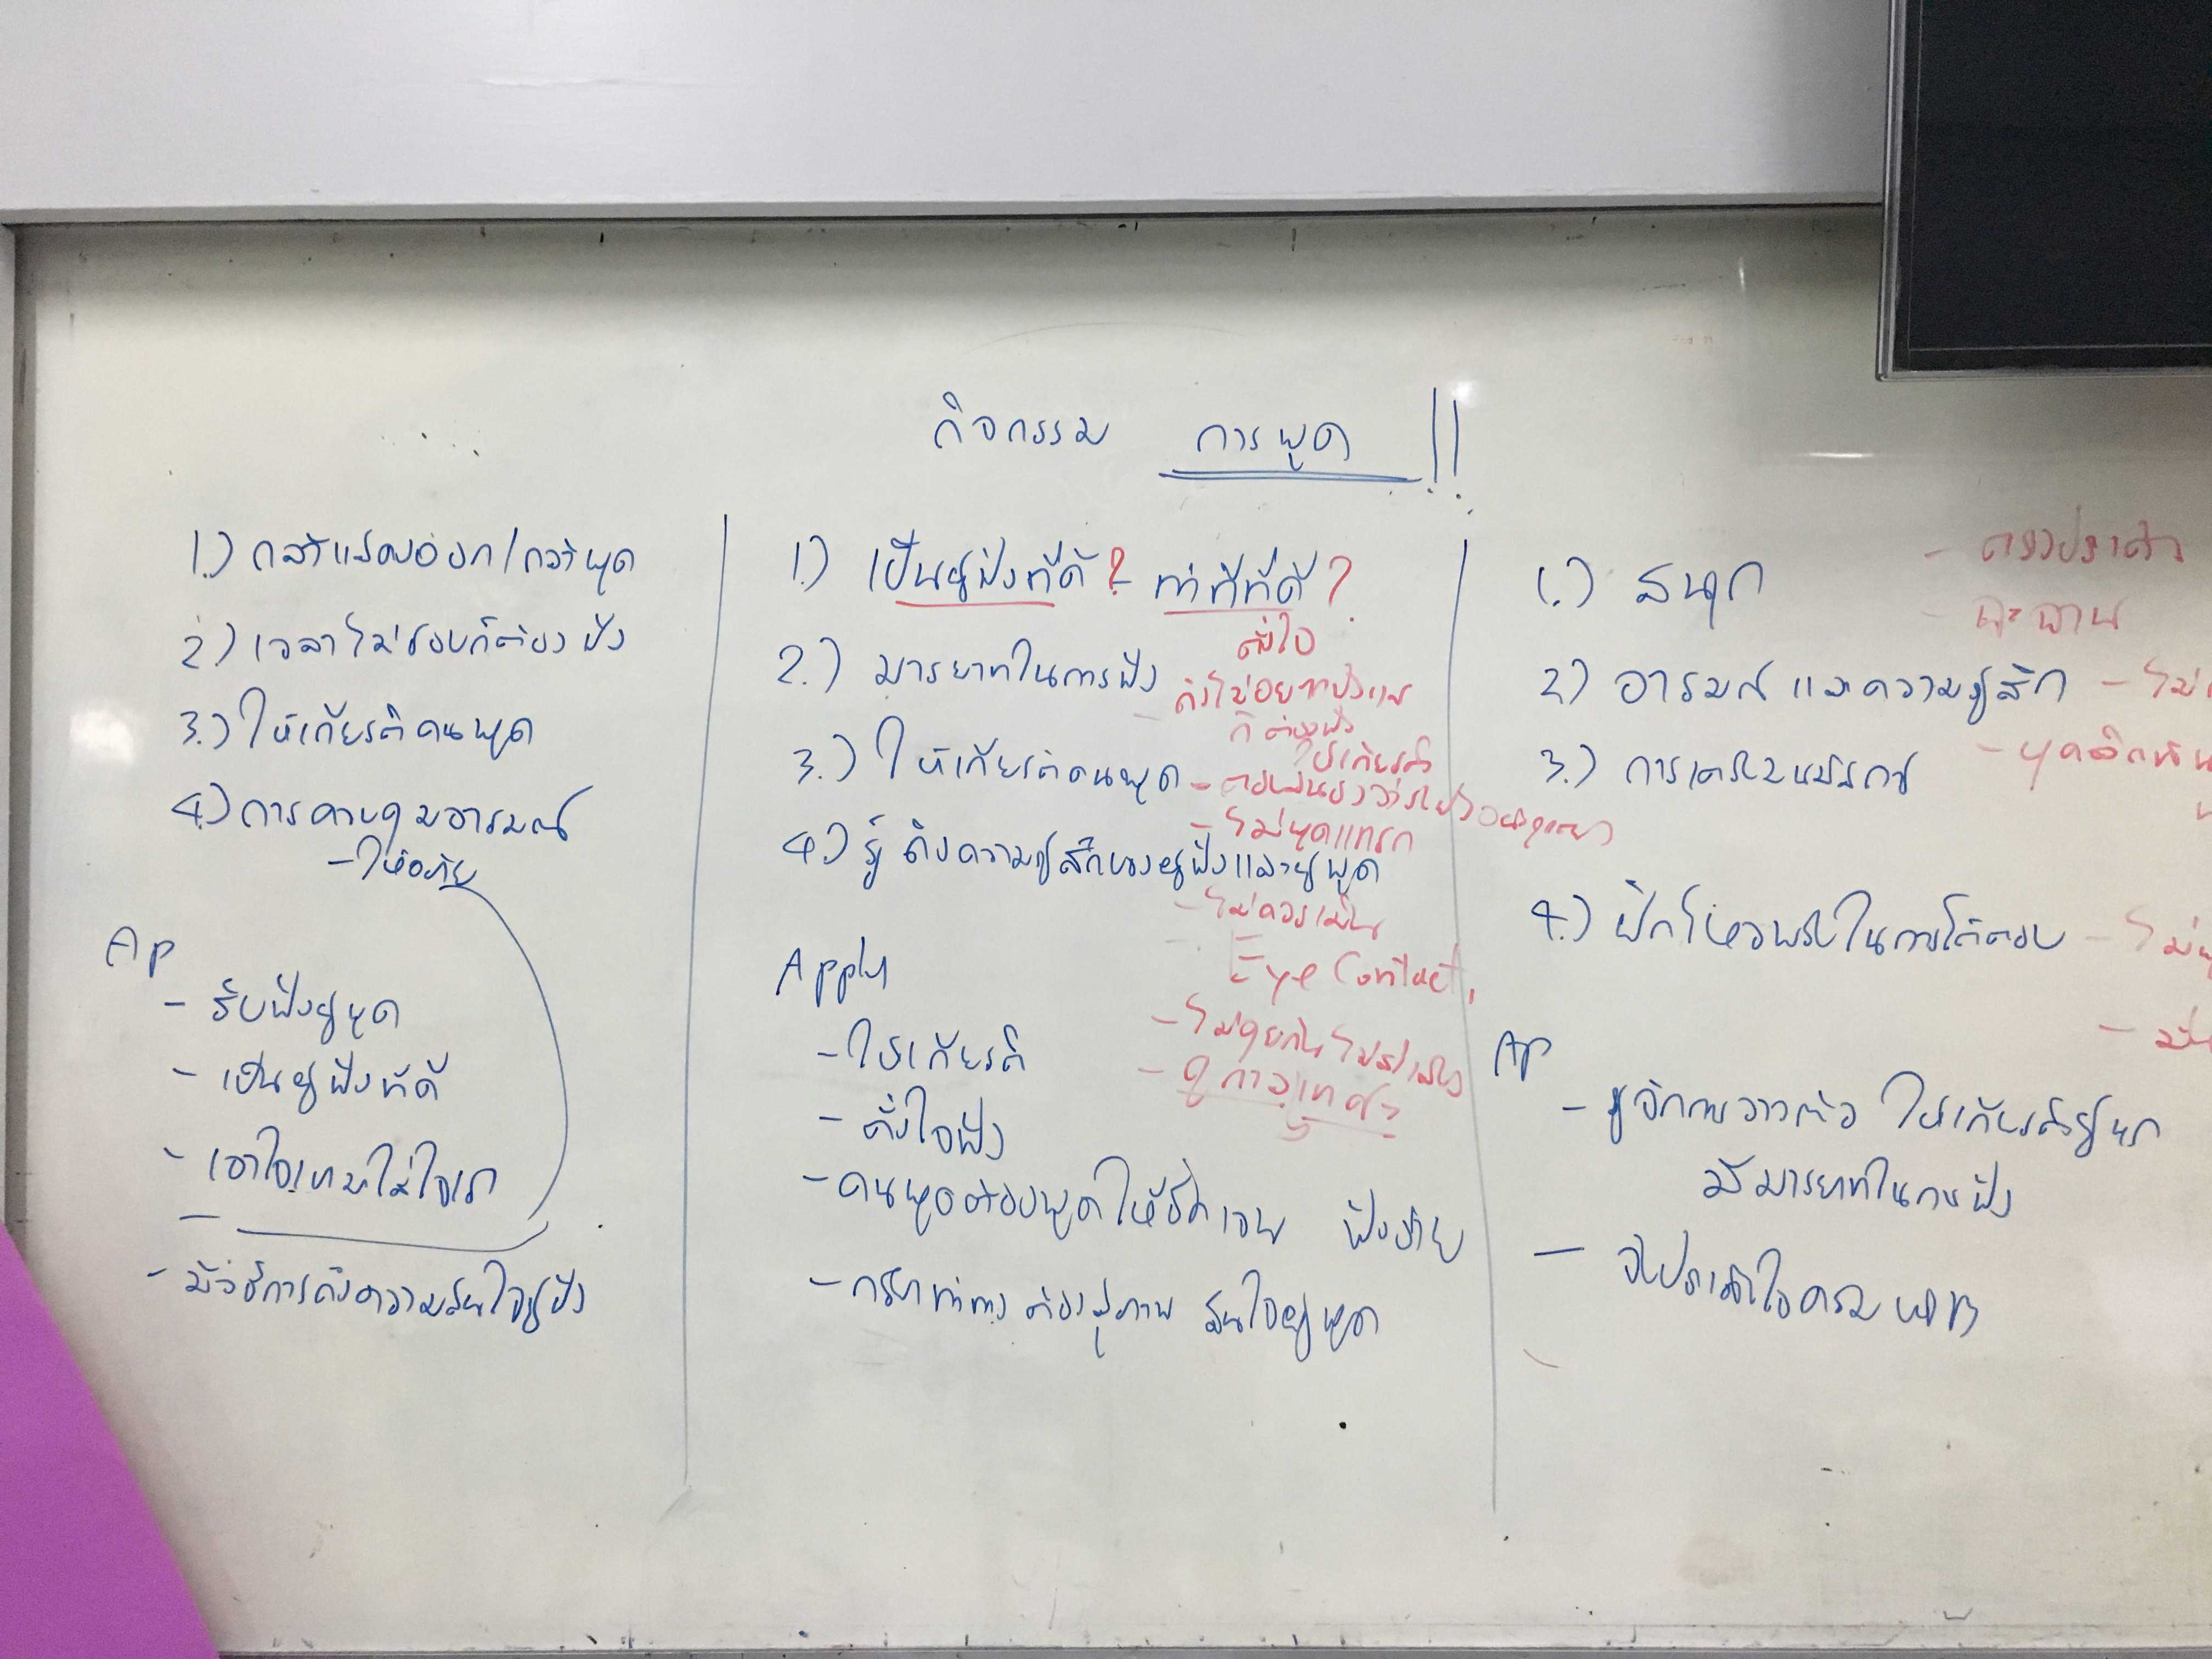 กิจกรรม การพูด !!
1.) กล้าแสดงออก/กล้าพูด
2.) เวลาไม่ชอบก็ต้องฟัง
3.) ให้เกียรติคนพูด
4.) การควบคุมอารมณ์
- ให้อภัย
Ap
- รับฟังผู้พูด
- เป็นผู้ฟังที่ดี
- เอาใจเขามาใส่ใจเรา
- มีวิธีการดึงความสนใจผู้ฟัง
1.) เป็นผู้ฟังที่ดี? - ท่าทีที่ดี?
ตั้งใจ
2.) มารยาทในการฟัง
ถึงไม่อยากฟัง
ก็ต้องฟัง
ให้เกียรติ
3.) ให้เกียรติคนพูด
- ไม่พูดแทรก
4.) รู้ถึงความรู้สึกของผู้ฟังและผู้พูด
- ไม่ควรเมิน
Eye Contact
Apply
- ไม่คุยกัน
- ดูกาลเทศะ
- ให้เกียรติ
- ตั้งใจฟัง
- คนพูดต้องพูดให้ชัดเจน ฟังง่าย
- กริยาท่าทางต้องสุภาพ สนใจผู้พูด
1.) สนุก
2.) อารมณ์และความรู้สึก - ไม่
3.) การเตรียมสมาธิ
4.) ฝึกไหวพริบในการโต้ตอบ - ไม่
Ap
- รู้จักการวางตัว ให้เกียรติผู้พูด
มีมารยาทในการฟัง
- จับประเด็นใจความ